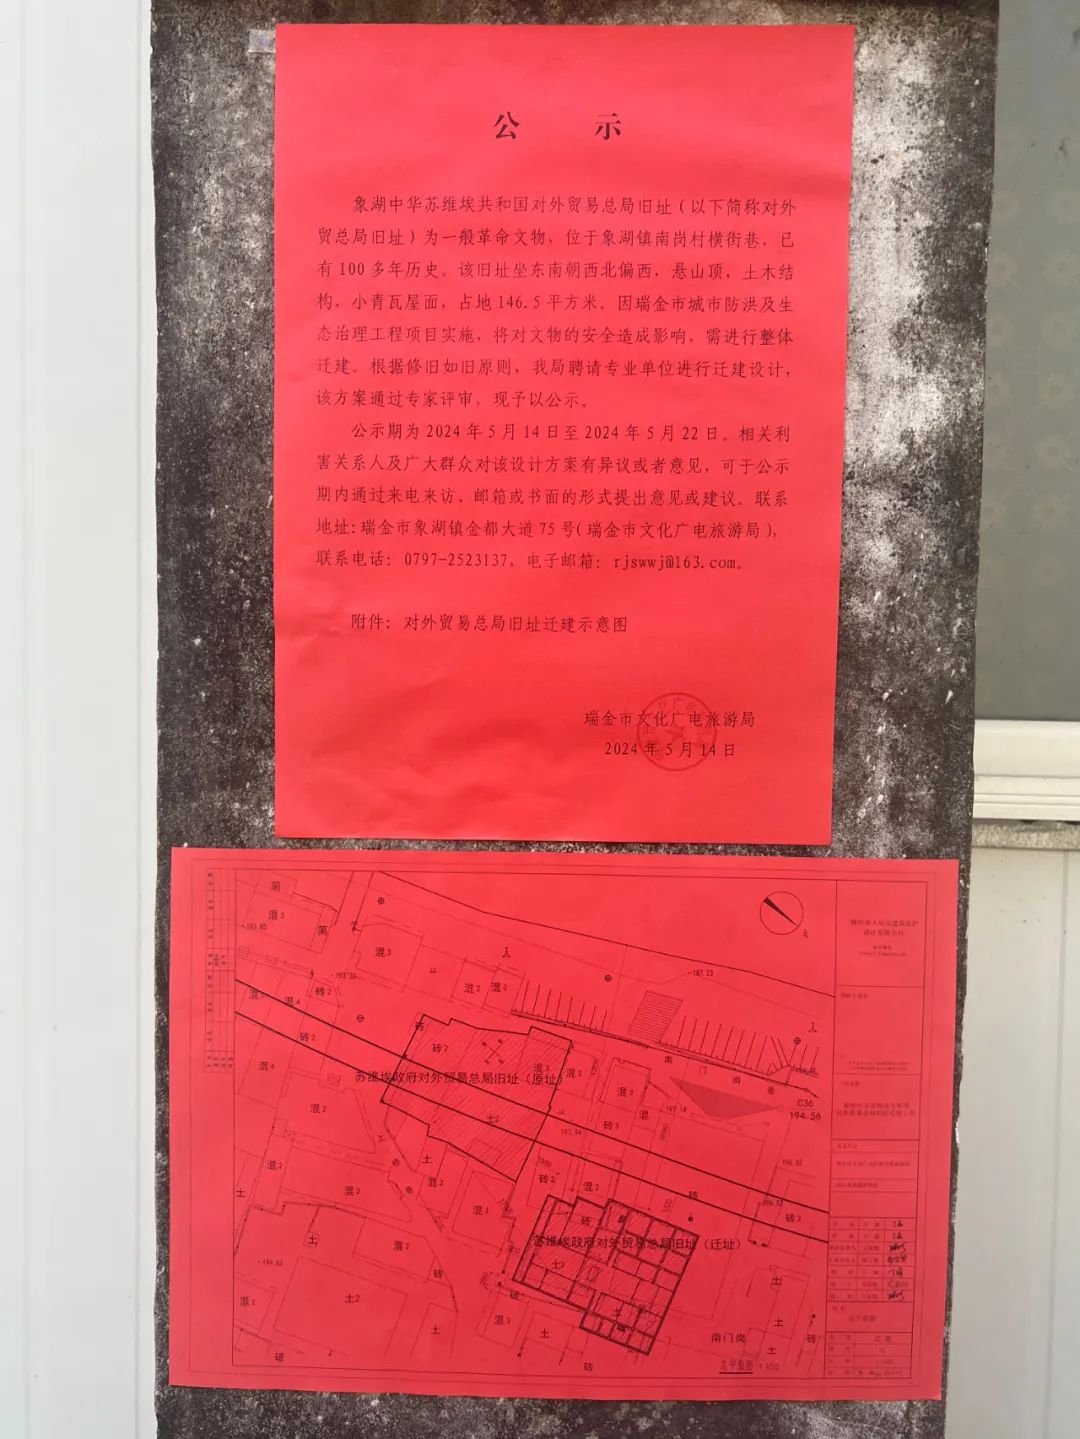 公 示
象湖中华苏维埃共和国对外贸易总局旧址（以下简称对外
贸总局旧址）为一般革命文物，位于象湖镇南岗村横街巷，已
有100多年历史。该旧址坐东南朝西北偏西，悬山顶，土木结
构，小青瓦屋面，占地146.5平方米。因瑞金市城市防洪及生
态治理工程项目实施，将对文物的安全造成影响，需进行整体
迁建。根据修旧如旧原则，我局聘请专业单位进行迁建设计，
该方案通过专家评审，现予以公示。
公示期为2024年5月14日至2024年5月22日。相关利
害关系人及广大群众对该设计方案有异议或者意见，可于公示
期内通过来电来访、邮箱或书面的形式提出意见或建议。联系
地址：瑞金市象湖镇金都大道75号（瑞金市文化广电旅游局），
联系电话：0797-2523137，电子邮箱：rjswwj@163.com。
附件：对外贸易总局旧址迁建示意图
瑞金市文化广电旅游局
2024年5月14日
简
混3
193.85
简
混3
193.30
混2
混3
187.23
北
混3
混4
砖2
砖
砖2
砖2
混3
苏维埃政府对外贸易总局旧址（原址）
土2
混4
混2
南
门
岗
巷
混3
混
砖3
C36
194.56
土
混2
混2
混2
混3
砖2
混2
砖
196.52
砖2
土
土
混2
砖
苏维埃政府对外贸易总局旧址（迁址）
土2
砖
土
194.62
混2
土2
土
混3
土
砖
南门岗
土
土
砖
总平面图 1:300